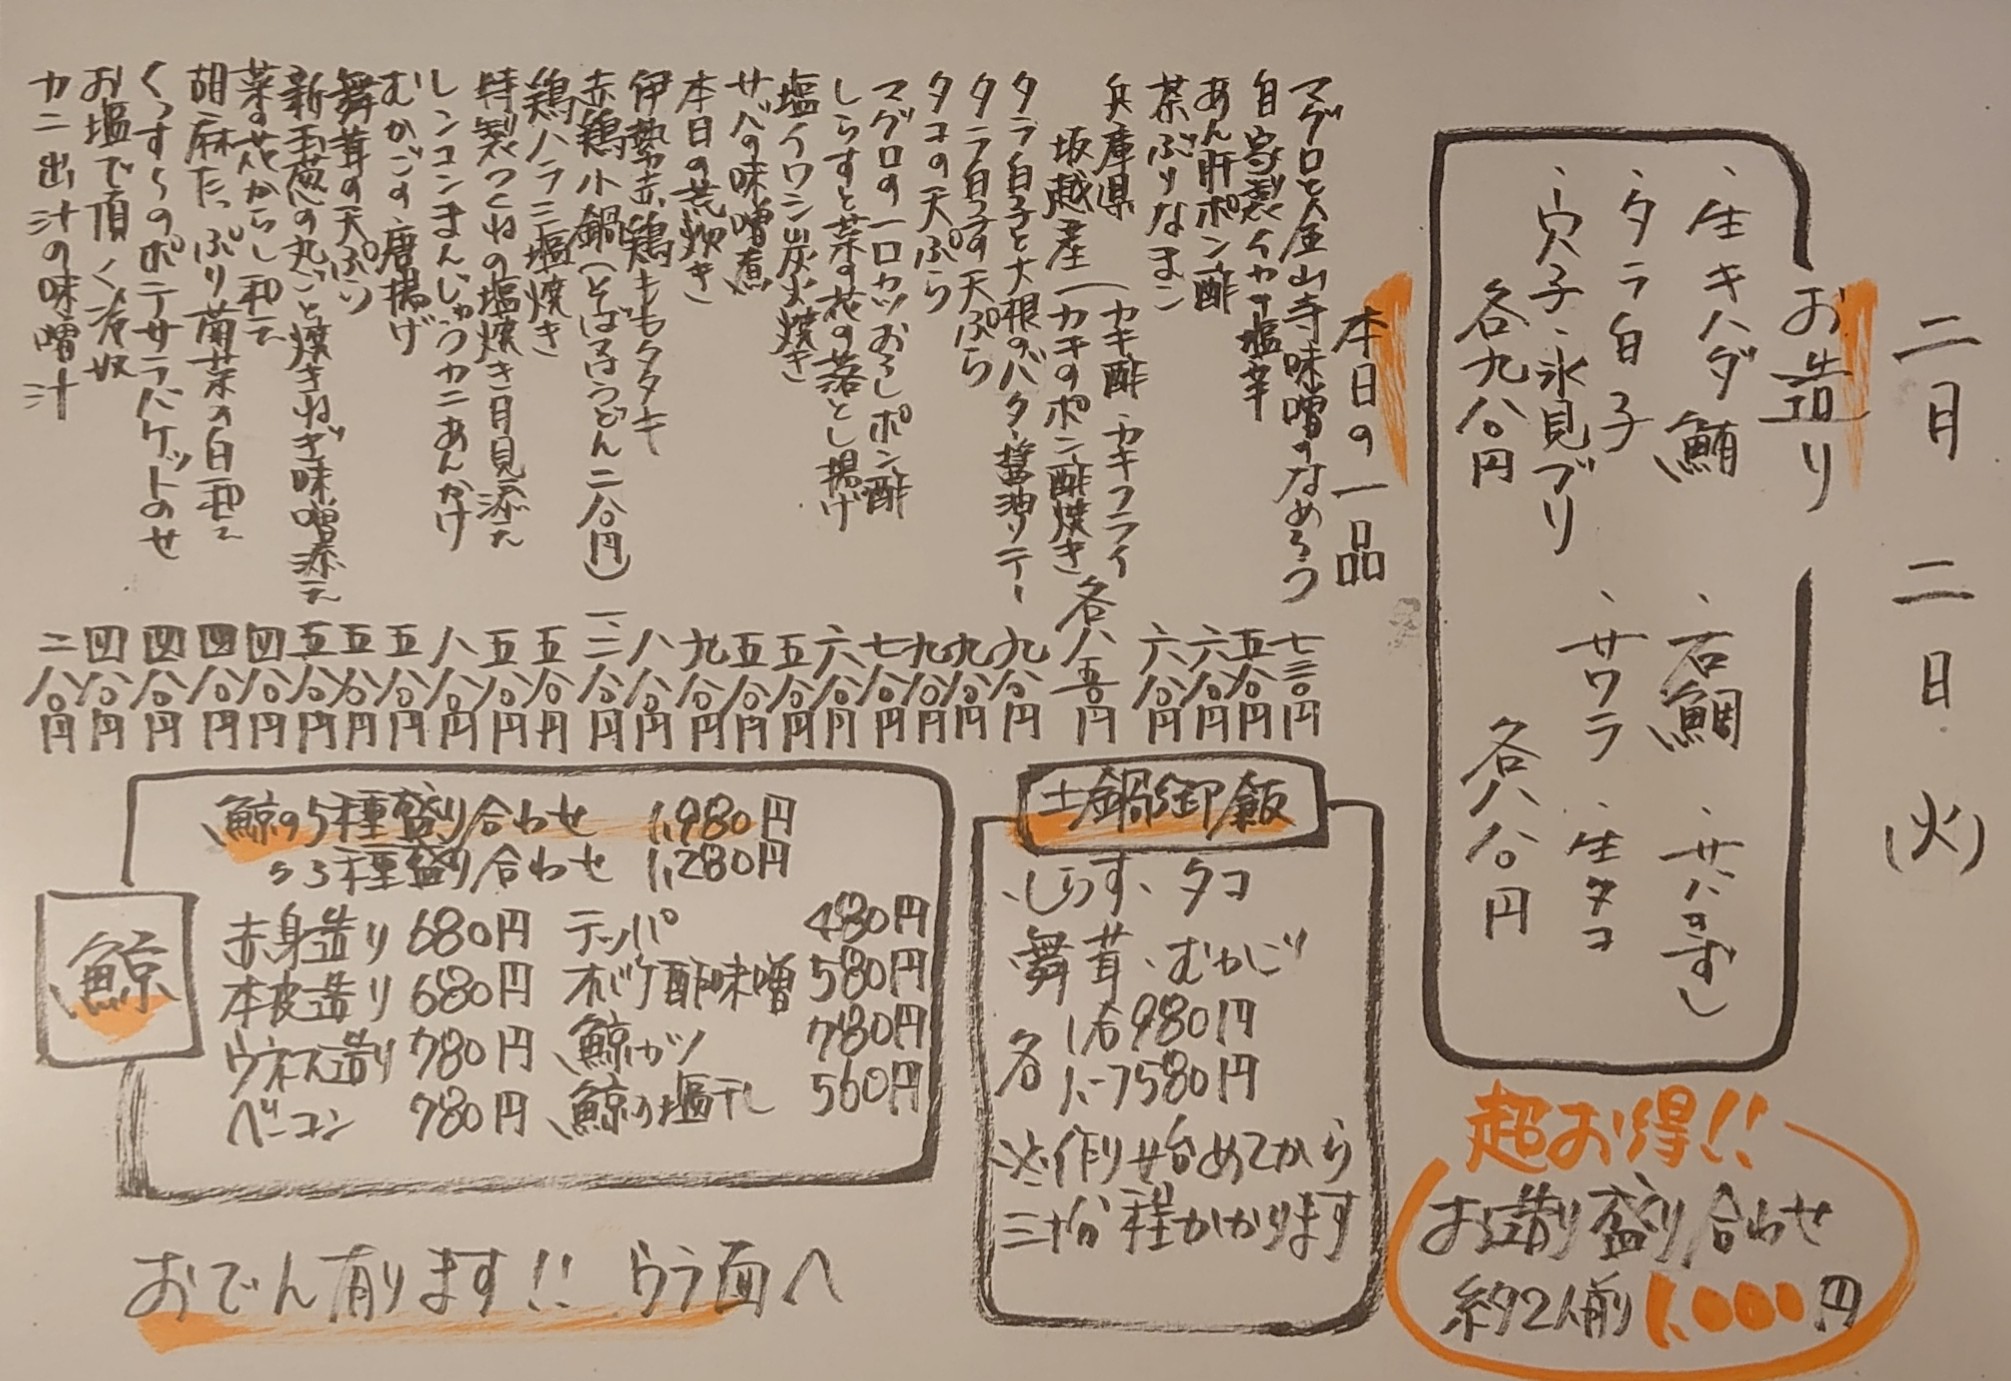 二月二日(火)
お造り
、生キハダ鮪
、石鯛
、サバのずし
、タラ白子
、サワラ
、生タコ
、穴子、氷見ブリ
各九八〇円
各八八〇円
本日の一品
マグロと金山寺味噌のなめろう 七三〇円
自家製イカの塩辛 五八〇円
あん肝ポン酢 六八〇円
茶ぶりなまこ 六八〇円
兵庫県
坂越産(カキ酢、カキフライ
カキのポン酢焼き 各八五〇円
タラ白子と大根のバター醤油ソテー 九八〇円
タラ白子の天ぷら 九八〇円
タコの天ぷら 九八〇円
マグロの一口カツおろしポン酢 七八〇円
しらすと菜の花の落とし揚げ 六八〇円
塩イワシ炭火焼き 五八〇円
サバの味噌煮 五八〇円
本日の荒炊き 九八〇円
伊勢赤鶏ももタタキ 八八〇円
赤鶏小鍋(そば又はうどん二八〇円) 一、二八〇円
鶏ハラミ塩焼き 五八〇円
特製つくねの塩焼き月見添え 五八〇円
レンコンまんじゅうカニあんかけ 八八〇円
むかごの唐揚げ 五八〇円
舞茸の天ぷら 五八〇円
新玉葱の丸ごと焼きねぎ味噌添え 五八〇円
菜の花からし和え 四八〇円
胡麻たっぷり菊菜の白和え 四八〇円
くっすらのポテサラバケットのせ 四八〇円
お塩で頂く冷奴 四八〇円
カニ出汁の味噌汁 二八〇円
鯨
鯨の5種盛り合わせ 1,980円
〃3種盛り合わせ 1,280円
赤身造り 680円 テッパ 480円
本皮造り 680円 オバケ酢味噌 580円
ウネス造り 780円 鯨カツ 780円
ベーコン 780円 鯨の塩干し 560円
土鍋御飯
、しらす、タコ
、舞茸、むかご
各 1合 980円
1.5合 1580円
※作り始めてから
三十分程かかります
超お得!!
お造り盛り合わせ
約2人前1,000円
おでん有ります!! ウラ面へ